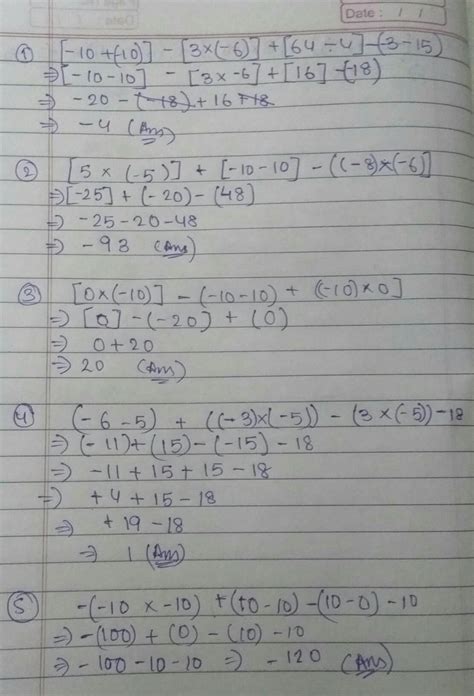 Date : / /
① [-10+(-10)] - [3×(-6)] + [64÷4] - (3-15)
⇒ [-10-10] - [3×-6] + [16] - (18)
⇒ -20 - (-18) + 16 +18
⇒ -4 (Ans)
② [5 × (-5)] + [-10-10] - ((-8)×(-6)]
⇒ [-25] + (-20) - (48)
⇒ -25-20-48
⇒ -93 (Ans)
③ [0×(-10)] - (-10-10) + (-10)×0]
⇒ [0] - (-20) + (0)
⇒ 0+20
⇒ 20 (Ans)
④ (-6-5) + ((-3)×(-5)) - (3×(-5))-18
⇒ (-11)+(15)-(-15)-18
⇒ -11+15+15-18
⇒ +4+15-18
⇒ +19-18
⇒ 1 (Ans)
⑤ -(-10 × -10) + (10-10) - (10-0) -10
⇒ -(100) + (0) - (10) -10
⇒ -100-10-10 ⇒ -120 (Ans)